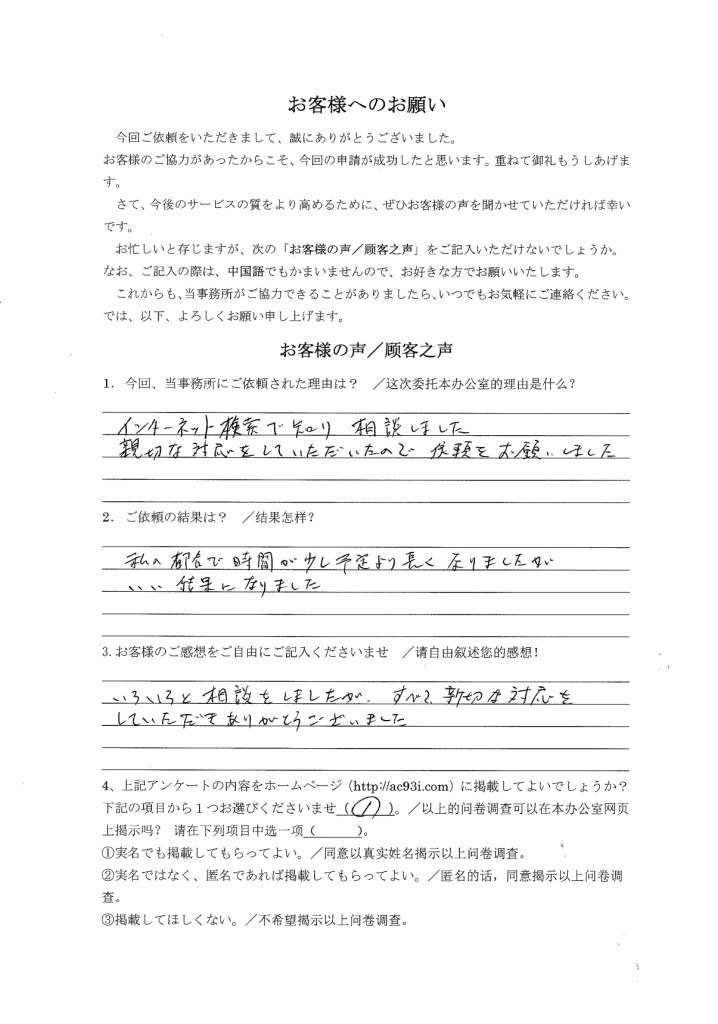 お客様へのお願い
今回ご依頼をいただきまして、誠にありがとうございました。
お客様のご協力があったからこそ、今回の申請が成功したと思います。重ねて御礼もうしあげま
す。
さて、今後のサービスの質をより高めるために、ぜひお客様の声を聞かせていただければ幸い
です。
お忙しいと存じますが、次の「お客様の声／顾客之声」をご記入いただけないでしょうか。
なお、ご記入の際は、中国語でもかまいませんので、お好きな方でお願いいたします。
これからも、当事務所がご協力できることがありましたら、いつでもお気軽にご連絡ください。
では、以下、よろしくお願い申し上げます。
お客様の声／顾客之声
1. 今回、当事務所にご依頼された理由は？ ／这次委托本办公室的理由是什么？
インターネット検索で知り 相談しました
親切な対応をしていただいたので 依頼をお願いしました
2. ご依頼の結果は？ ／结果怎样？
私の都合で時間が少し予定より長くなりましたが
いい結果になりました
3. お客様のご感想をご自由にご記入くださいませ ／请自由叙述您的感想！
いろいろと相談をしましたが、すべて親切な対応を
していただきありがとうございました
4、上記アンケートの内容をホームページ（http://ac93i.com）に掲載してよいでしょうか？
下記の項目から１つお選びくださいませ（①）。／以上的问卷调查可以在本办公室网页
上揭示吗？ 请在下列项目中选一项（ ）。
①実名でも掲載してもらってよい。／同意以真实姓名揭示以上问卷调查。
②実名ではなく、匿名であれば掲載してもらってよい。／匿名的话，同意揭示以上问卷调
查。
③掲載してほしくない。／不希望揭示以上问卷调查。